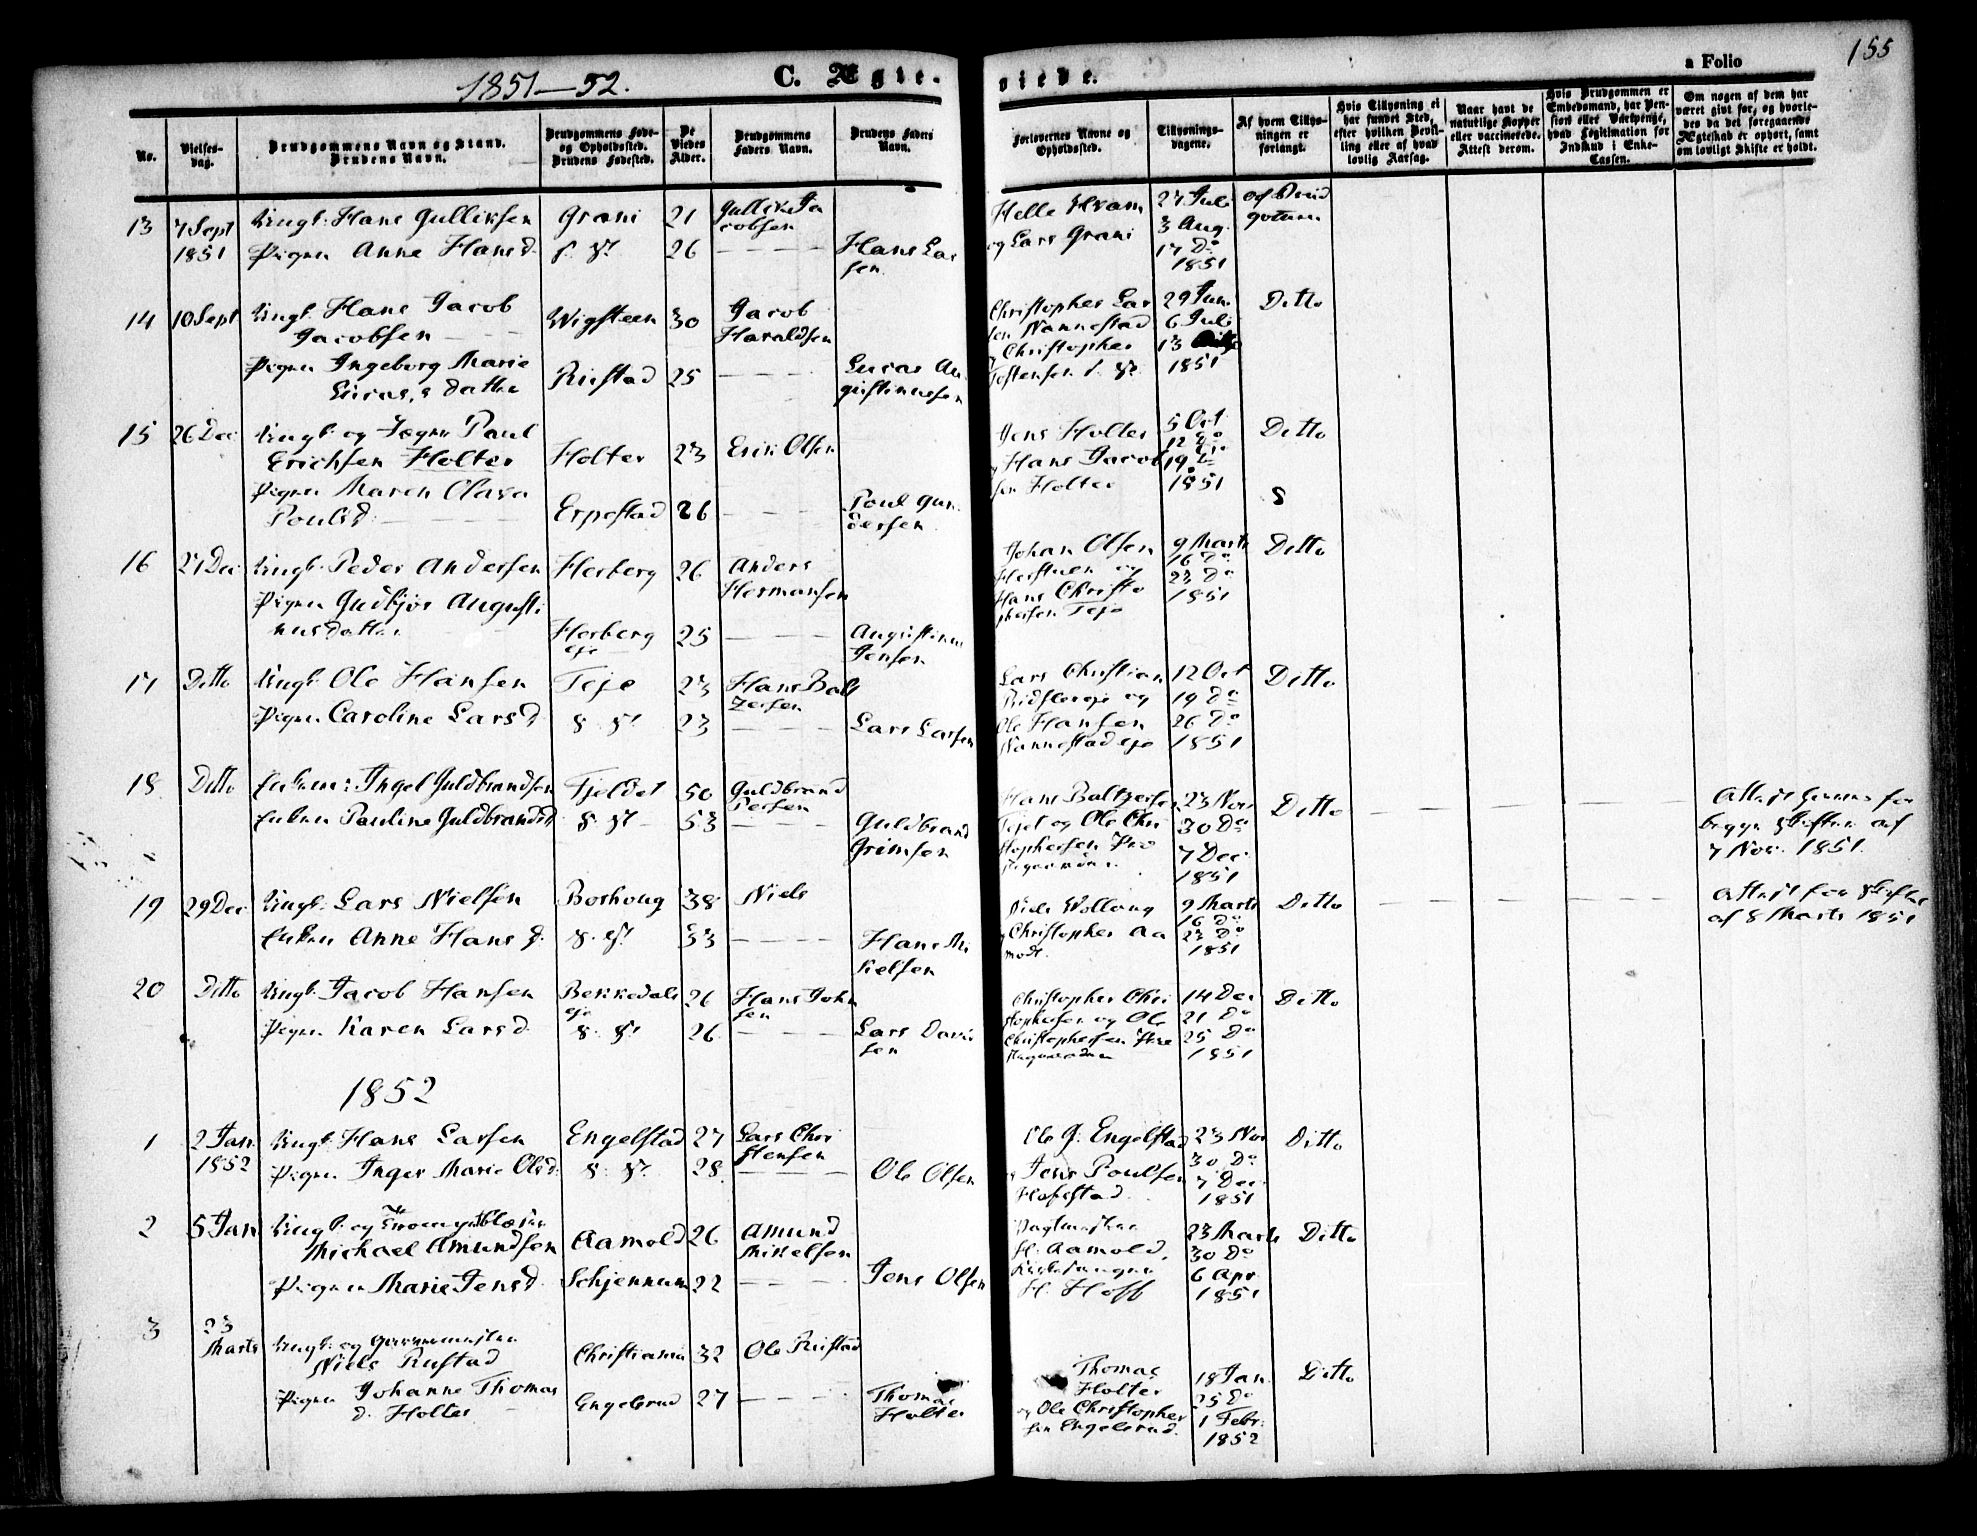 1851–52.
C. Ægte-
viede.
a Folio
155
No.
Vielses-
dag.
Brudgommens Navn og Stand.
Brudens Navn.
Brudgommens Føde-
og Opholdssted.
Brudens Fødested.
De
Viedes
Alder.
Brudgommens
Faders Navn.
Brudens Faders
Navn.
Forlovernes Navne og
Opholdssted.
Tillysnings-
dagene.
Af hvem Tillys-
ningen er
forlangt.
Hvis Tillysning ei
har fundet Sted,
efter hvilken Bevil-
ling eller af hvad
lovlig Aarsag.
Naar havt de
naturlige Kopper
eller vaccinerede.
Attest derom.
Hvis Brudgommen er
Embedsmand, har Pen-
sion eller Vartpenge,
hvad Legitimation for
Indskud i Enke-
Cassen.
Om nogen af dem har
været givt før, og hvorle-
des da det foregaaende
Ægteskab er ophørt, samt
om lovligt Skifte er holdt.
13 7 Sept Ungk. Hans Gulliksen Grani 21 Gullik Ja
cobsen
1851 Pigen Anne Hansd. 26 Hans Lar
sen
Helle Kram 27 Juli af Brud
og Lars Grani 3 Aug. gommen
17 Do
1851
14 10 Sept Ungk. Hans Jacob Wigsteen 30 Jacob
Jacobsen Haraldsen
Pigen Ingeborg Marie Rustad 25 Lucas Au
Lucas,s datter gustinusen
Christopher Lar 29 Jun. Ditto
sen Nannestad 6 Juli
Christopher 13
Tostensen 1851
15 26 Dec Ungk. og Paul Holter 23 Erik Olsen
Erichsen Holter
Pigen Maren Olava Erpestad 26 Poul Gun
Poulsd. dersen
Jens Holter 5 Oct Ditto
12 Do
Hans Jacob 19 Do
sen Holter 1851
16 27 Dec Ungk. Peder Andersen Herberg 26 Anders
Hermansen
Pigen Gudbjør Augusti
nusdatter Herberg 25 Augustinus
eje Jensen
Johan Olsen 9 Marts Ditto
og 16 Do
Hans Christo 23 Do
phersen Teje 1851
17 Ditto Ungk. Ole Hansen Teje 23 Hans Balt
zersen
Pigen Caroline Larsd 23 Lars Larsen
Lars Christian 12 Oct Ditto
og 19 Do
Ole Hansen 26 Do
Nannestadeje 1851
18 Ditto Enkem: Ingel Guldbrandsen Fjeldet 50 Guldbrand
Persen
Enken Pauline Guldbrandsd 53 Guldbrand
Grimsen
Hans Baltzersen 23 Nov Ditto
Tejet og Ole Chri 30 Do
stophersen 7 Dec
1851
begge Skiften af
7 Nov. 1851.
19 29 Dec Ungk. Lars Nielsen Borhoug 38 Niels
Enken Anne Hansd. 33 Hans Mi
kelsen
Niels Wollaug 9 Marts Ditto
16 Do
Christopher Aa 23 Do
modt. 1851
Attest for Skifte
af 8 Marts 1851
20 Ditto Ungk. Jacob Hansen Bekkedals 26 Hans John
eje sen
Pigen Karen Larsd. 26 Lars David
sen
Christopher Chri 14 Dec Ditto
stophersen og Ole 21 Do
Christophersen 25 Do
1851
1852
1 2 Jan. Ungk. Hans Larsen Engelstad 27 Lars Chri
stensen
1852 Pigen Inger Marie Olsd. 28 Ole Olsen
Ole G. Engelstad 23 Nov Ditto
30 Do
Jens Poulsen 7 Dec.
1851
2 5 Jan Ungk. og
Michael Amundsen Aamold 26 Amund
Mikkelsen
Pigen Marie Jensd. Schjennum 22 Jens Olsen
23 Marts Ditto
H. Aamold, 30 Do
6 Apr.
H. Hoff 1851
3 23
Marts Ungk. og
Niels Rustad Christiania 32 Ole Rustad
Pigen Johanne Thomas Engelsrud 27 Thomas
d. Holter Holter
Thomas 18 Jan. Ditto
Holter 25 Do
og Ole Christopher 1 Febr.
sen Engelsrud. 1852